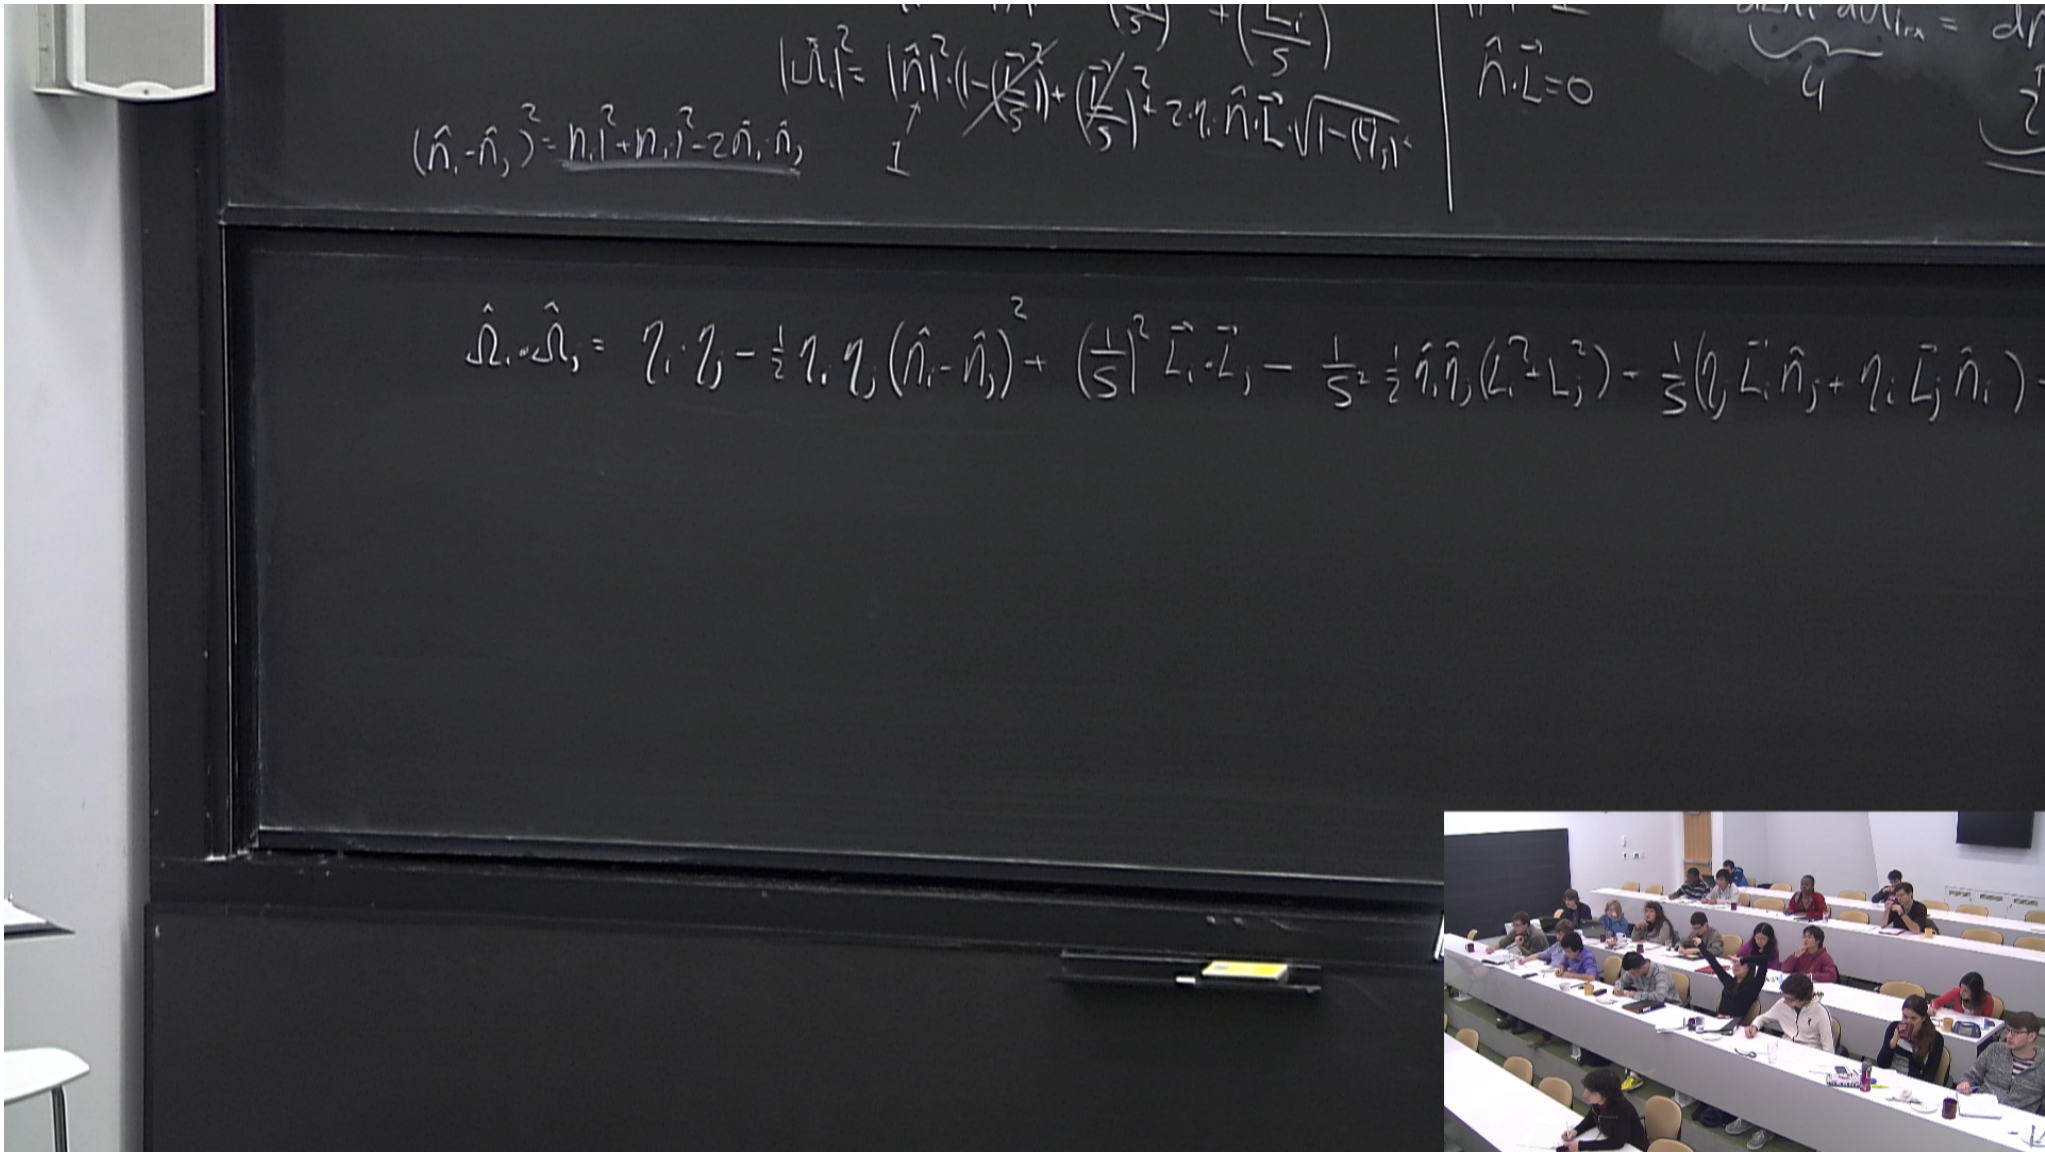 |Ω̂ᵢ|² = |n̂|²·(1-(L⃗/S)²)+(L⃗/S)²+2·η· n̂·L⃗·√1-(L⃗/S)²
n̂·L⃗=0
4
(n̂ᵢ-n̂ⱼ)² = nᵢ|²+nⱼ|²-2n̂ᵢ·n̂ⱼ
1
Ω̂ᵢ·Ω̂ⱼ = ηᵢ·ηⱼ - ½ ηᵢ ηⱼ (n̂ᵢ-n̂ⱼ)² + (1/S)² L⃗ᵢ·L⃗ⱼ - 1/S² ½ η̂ᵢη̂ⱼ(Lᵢ²+Lⱼ²) - 1/S(ηⱼ L⃗ᵢ n̂ⱼ + ηᵢ L⃗ⱼ n̂ᵢ)